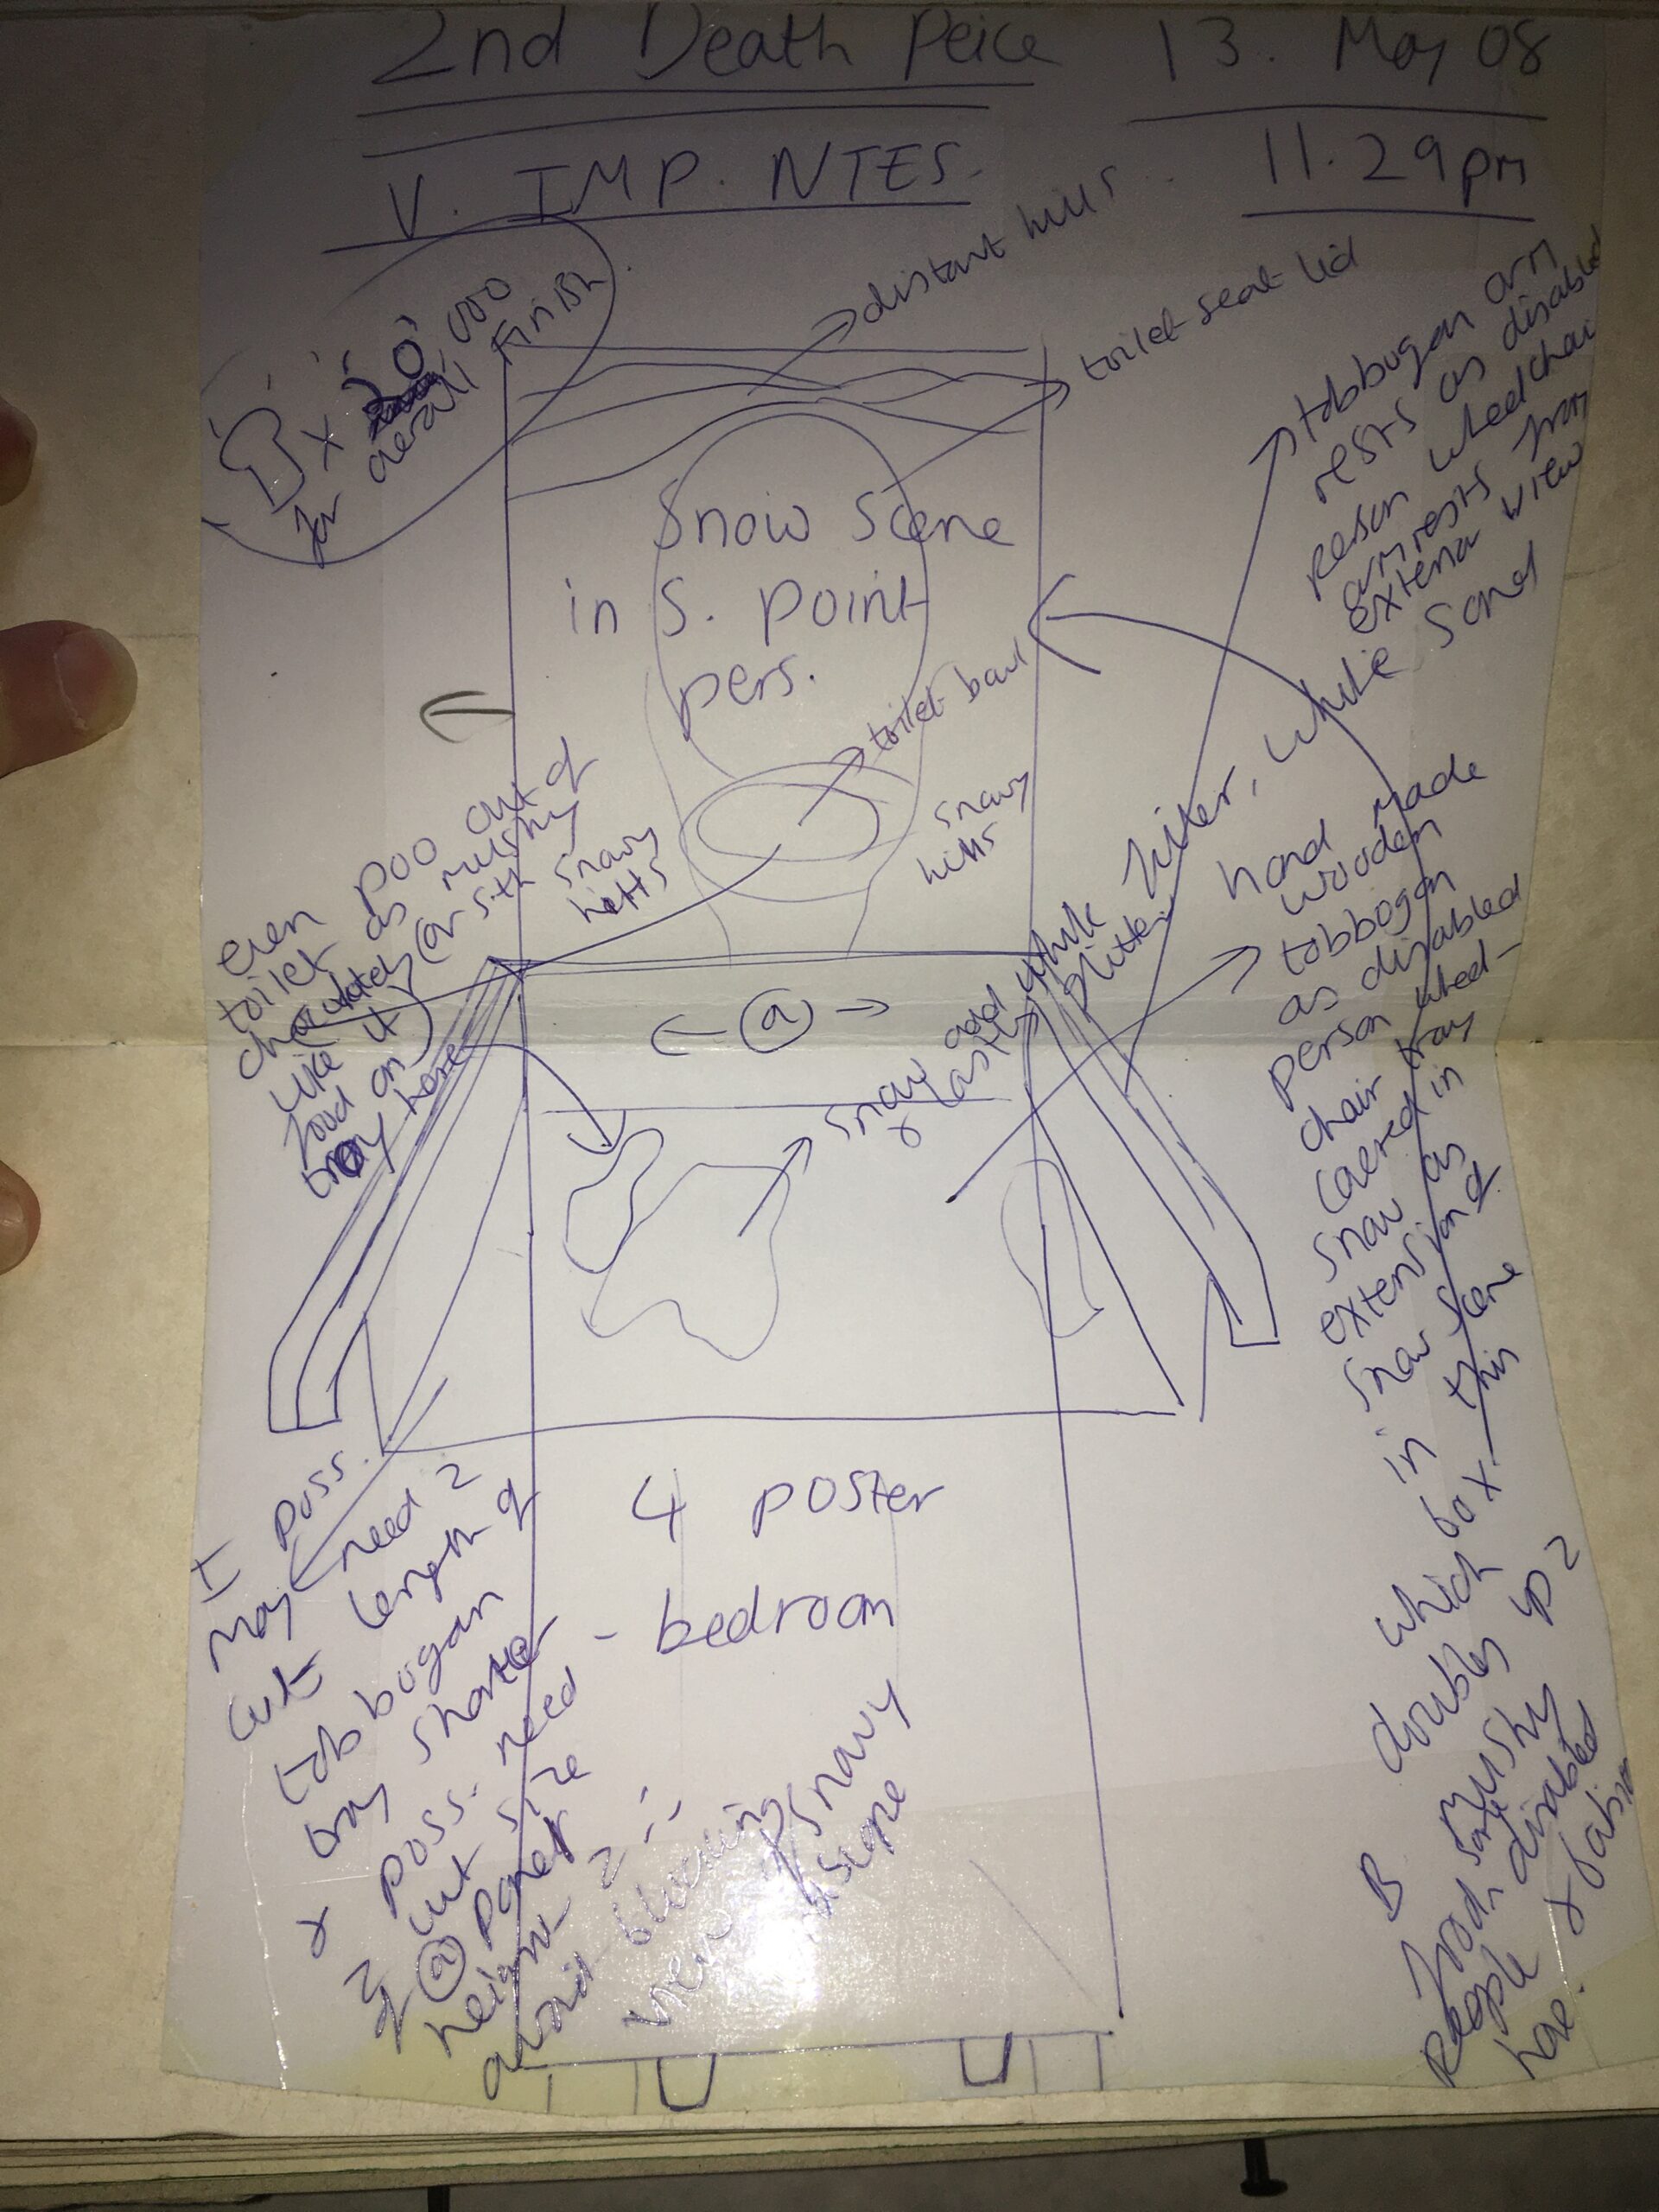 2nd Death Peice 13. May 08
V. IMP. NTES. 11.29pm
x 20,000
for aerail Finish
distant hills
toilet seat lid
Snow Scene
in S. Point
pers.
toilet bowl
snowy
hills
snowy
hills
tobbogan arm
rests as disabled
person wheelchair
armrests from
exterior view
even poo out of
toilet as mushy
chocolatey (or sth
like it)
food on
tray here
← ⓐ →
snow add white
plastic glitter
filler, white Sand
hand made
wooden
tobbogan
as disabled
person wheel-
chair tray
Caered in
snow as
extension of
snow scene
in this
box
which
doubles up 2
B mushy
food some disabled
people
have.
I poss.
may need 2
cut length of
tobbogan
tray shorter
& poss. need
2 cut size
of ⓐ panel
height 2
avoid blocking
view of snowy
4 poster
- bedroom